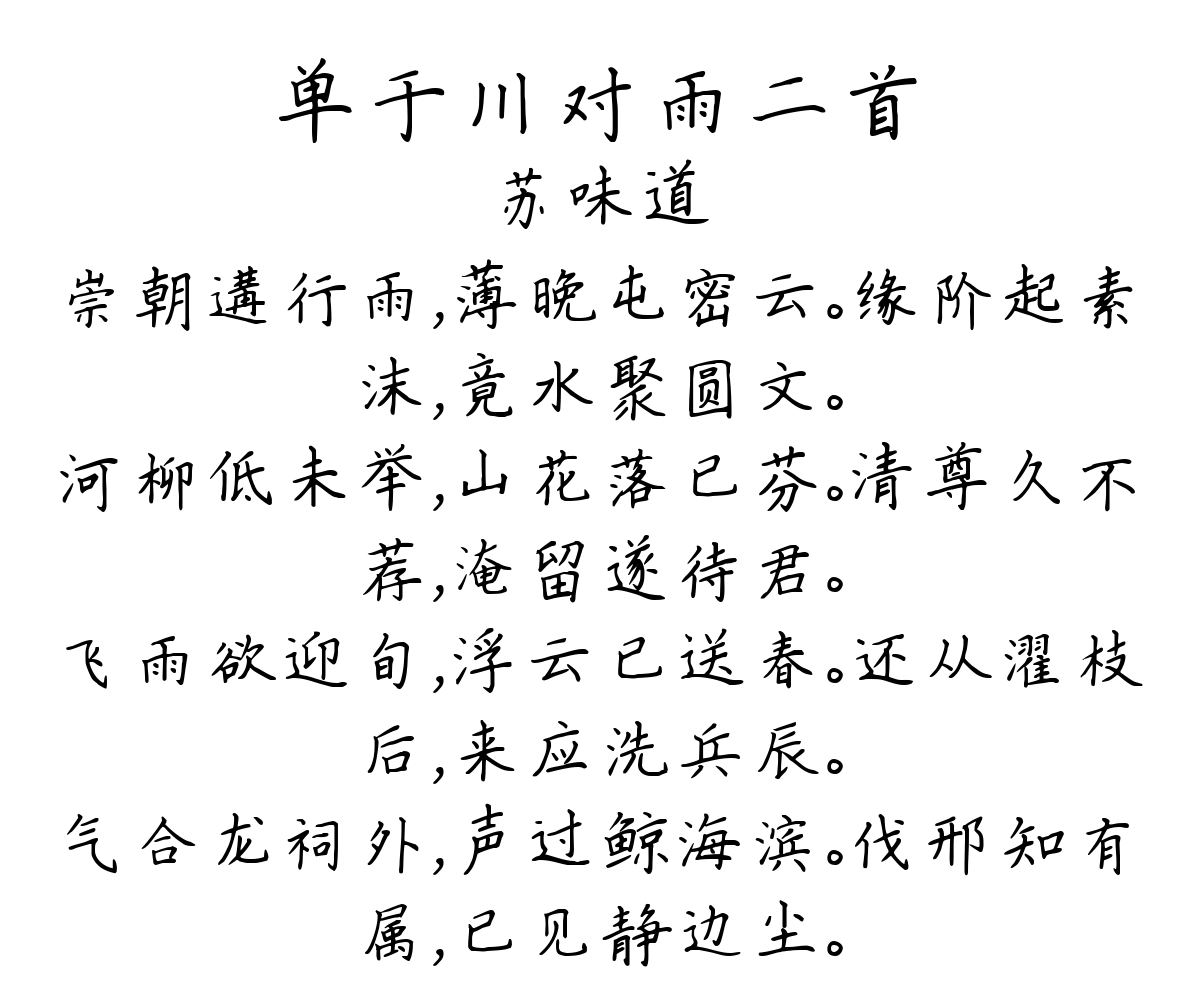 单于川对雨二首
苏味道
崇朝遘行雨,薄晚屯密云。缘阶起素
沫,竟水聚圆文。
河柳低未举,山花落已芬。清尊久不
荐,淹留遂待君。
飞雨欲迎旬,浮云已送春。还从濯枝
后,来应洗兵辰。
气合龙祠外,声过鲸海滨。伐邢知有
属,已见静边尘。